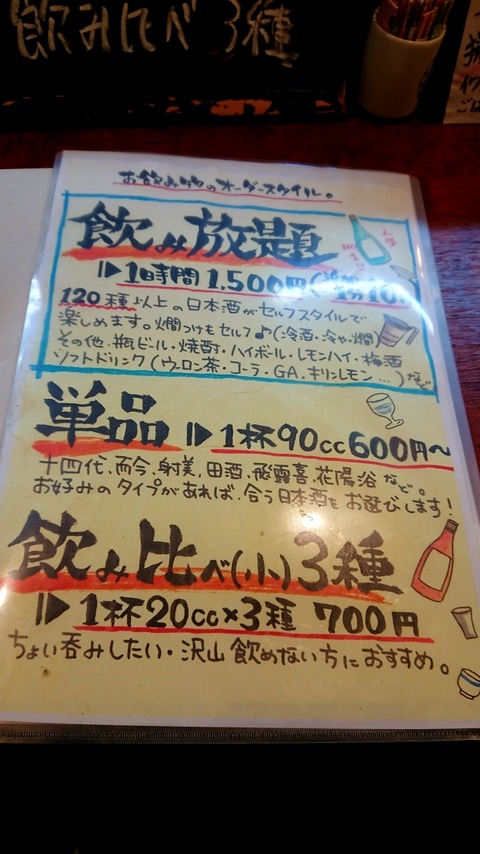 飲み比べ 3種
お飲み物のオーダースタイル。
飲み放題
人気
No.1!!
1時間 1.500円(延長 1分10.
120種以上の日本酒がセルフスタイルで
楽しめます。燗つけもセルフ♪(冷酒・冷や・燗)
その他、瓶ビール・焼酎・ハイボール・レモンハイ・梅酒
ソフトドリンク(ウーロン茶・コーラ・GA.キリンレモン…)など
単品 1杯90cc600円〜
十四代、而今、射美、田酒、飛露喜、花陽浴など。
お好みのタイプがあれば、合う日本酒をお選びします!
飲み比べ(小)3種
1杯20cc×3種 700円
ちょい呑みしたい・沢山飲めない方におすすめ。